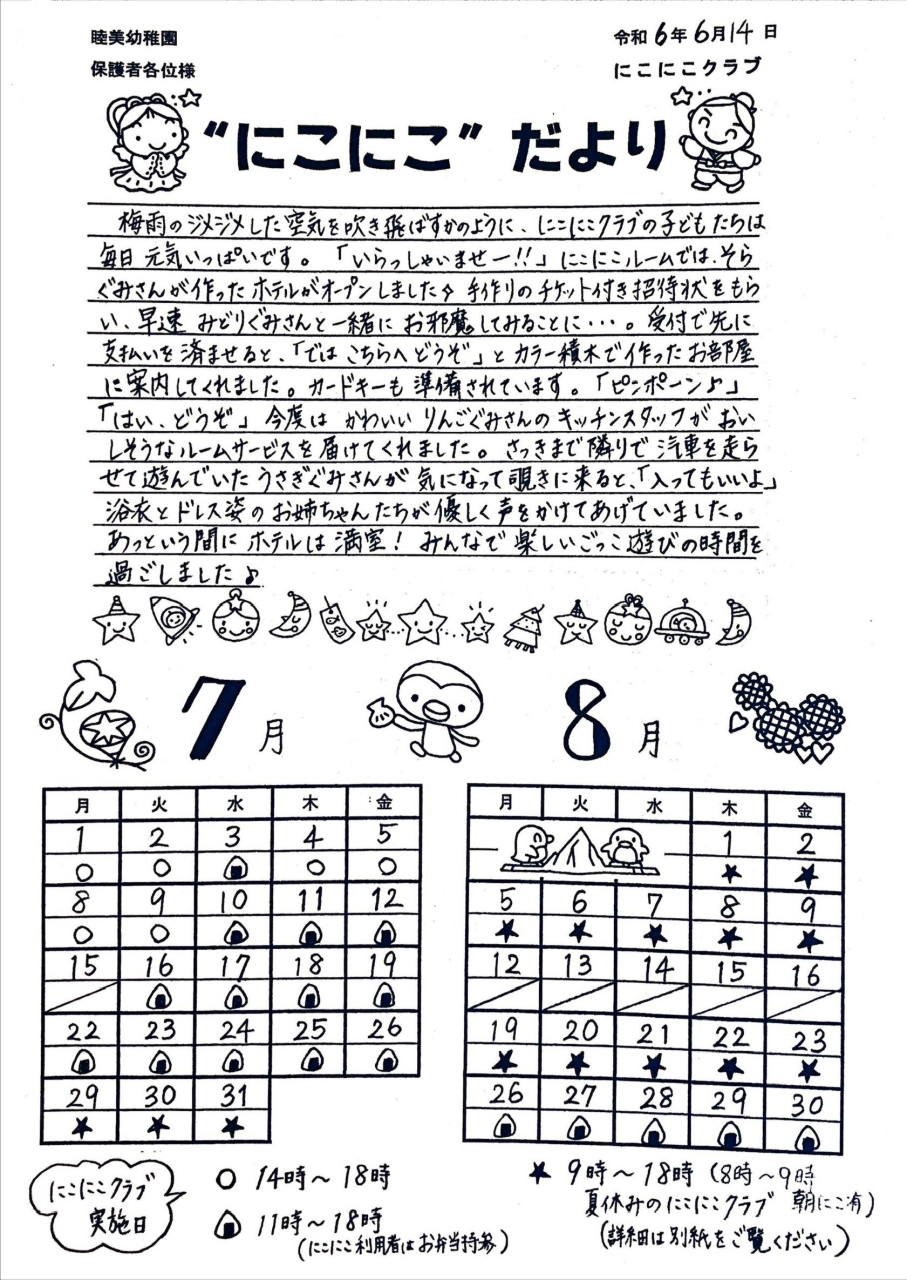 睦美幼稚園
令和6年6月14日
保護者各位様
にこにこクラブ
"にこにこ" だより
梅雨のジメジメした空気を吹き飛ばすかのように、にこにこクラブの子どもたちは
毎日元気いっぱいです。「いらっしゃいませー!!」にこにこルームでは、そら
ぐみさんが作ったホテルがオープンしました♪手作りのチケット付き招待状をもら
い、早速みどりぐみさんと一緒にお邪魔してみることに・・・。受付で先に
支払いを済ませると、「ではこちらへどうぞ」とカラー積木で作ったお部屋
に案内してくれました。カードキーも準備されています。「ピンポーン♪」
「はい、どうぞ」今度はかわいいりんごぐみさんのキッチンスタッフがおい
しそうなルームサービスを届けてくれました。さっきまで隣りで汽車を走ら
せて遊んでいたうさぎぐみさんが気になって覗きに来ると、「入ってもいいよ」
浴衣とドレス姿のお姉ちゃんたちが優しく声をかけてあげていました。
あっという間にホテルは満室!みんなで楽しいごっこ遊びの時間を
過ごしました♪
7月
月 火 水 木 金
1 2 3 4 5
○ ○ 🍙 ○ ○
8 9 10 11 12
○ ○ 🍙 🍙 🍙
15 16 17 18 19
/ 🍙 🍙 🍙 🍙
22 23 24 25 26
🍙 🍙 🍙 🍙 🍙
29 30 31
★ ★ ★
8月
月 火 水 木 金
1 2
★ ★
5 6 7 8 9
★ ★ ★ ★ ★
12 13 14 15 16
/ / / / /
19 20 21 22 23
★ ★ ★ ★ ★
26 27 28 29 30
🍙 🍙 🍙 🍙 🍙
にこにこクラブ
実施日
○ 14時〜18時
🍙 11時〜18時
(にこにこ利用者はお弁当持参)
★ 9時〜18時(8時〜9時
夏休みのにこにこクラブ 朝にこ有)
(詳細は別紙をご覧ください)